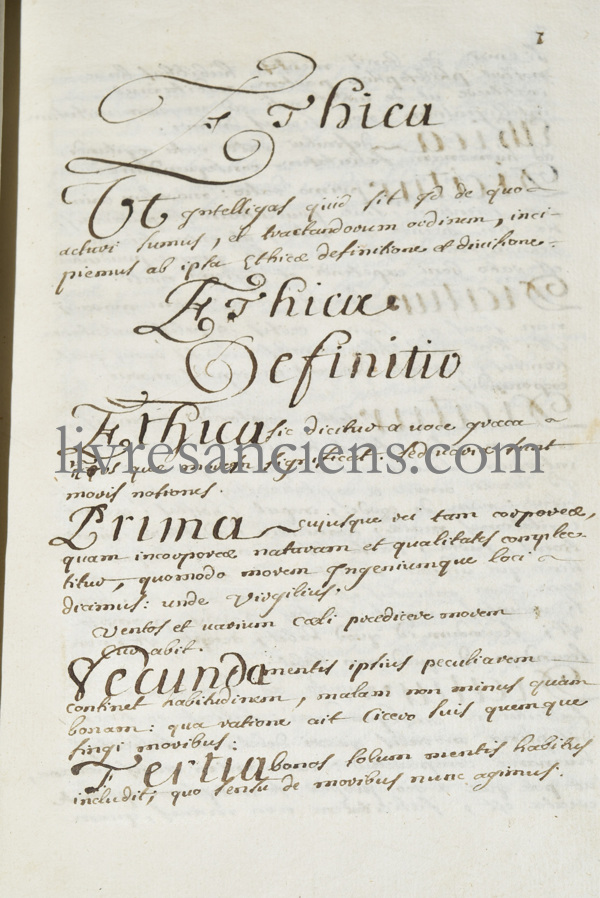 1
Ethica
Ut Intelligas quid sit qd de quo
acturi sumus, et tractandorum ordinem, inci
piemus ab ipsa Ethicæ definitione et divisione.
Ethicæ
Definitio
Ethica sic dicitur a voce græca
que morem significat. Sed
moris notiones.
Prima cujusque rei tam corporeæ,
quam incorporeæ naturam et qualitates complec
titur, quomodo morem Ingeniumque loci
dicimus: unde Virgilius;
Ventos et varium cæli prædicere morem
Cura abit.
Secunda mentis ipsius peculiarem
continet habitudinem, malam non minus quam
bonam: qua ratione ait Cicero suis quemque
fingi moribus:
Tertia bonos solum mentis habitus
includit; quo sensu de moribus nunc agimus.
livresanciens.com